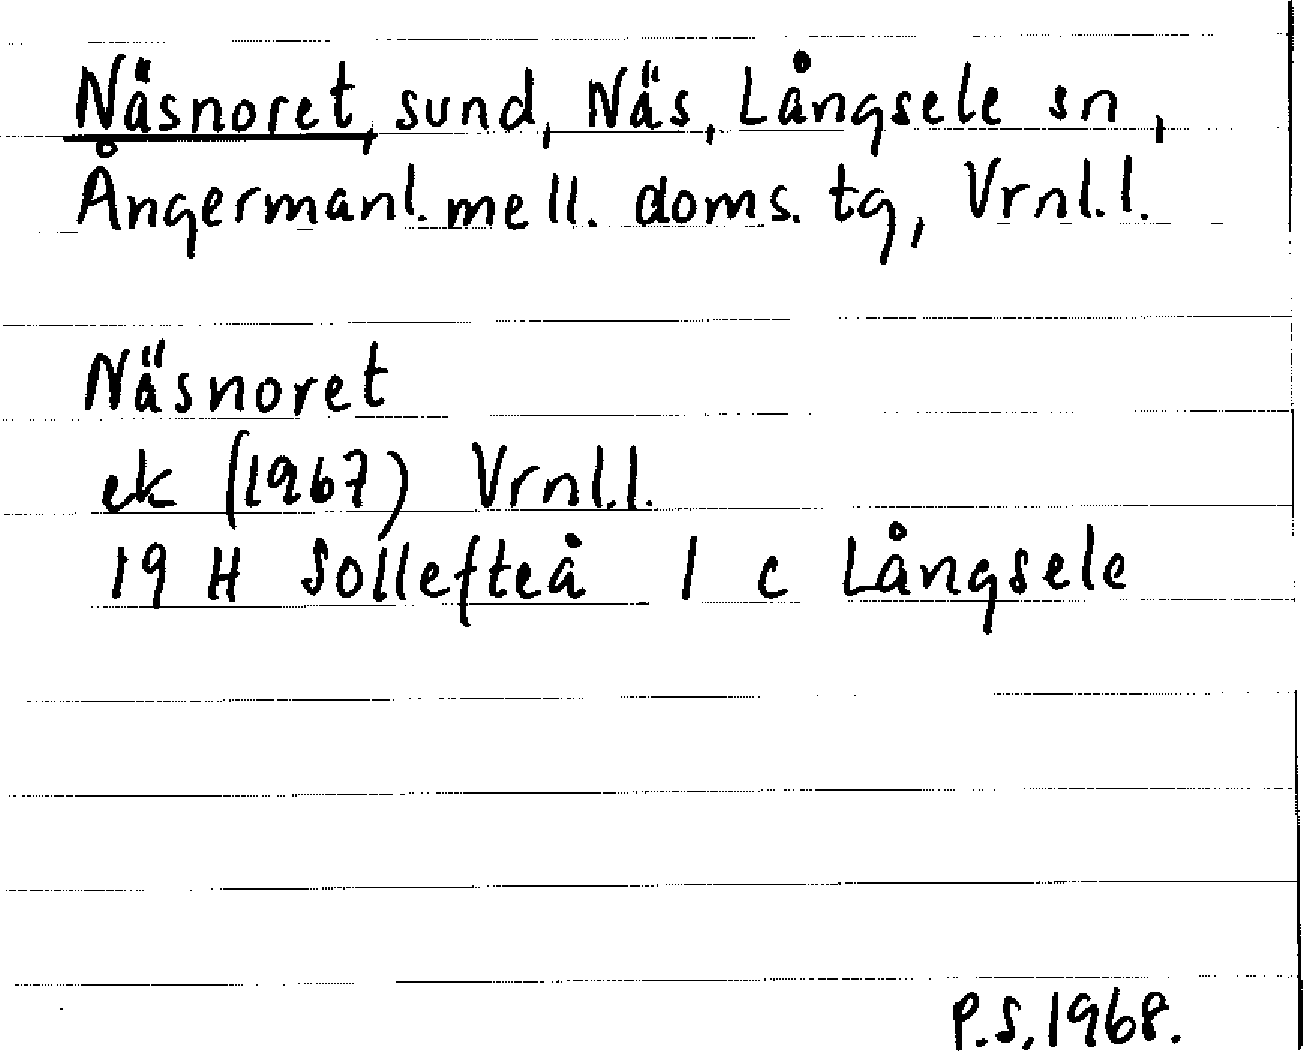 Näsnoret, sund, Näs, Långsele sn,
Ångermanl. mell. doms. tg, Vrnl.l.
Näsnoret
ek (1967) Vrnl.l.
19 H Sollefteå 1 c Långsele
P.S. 1968.